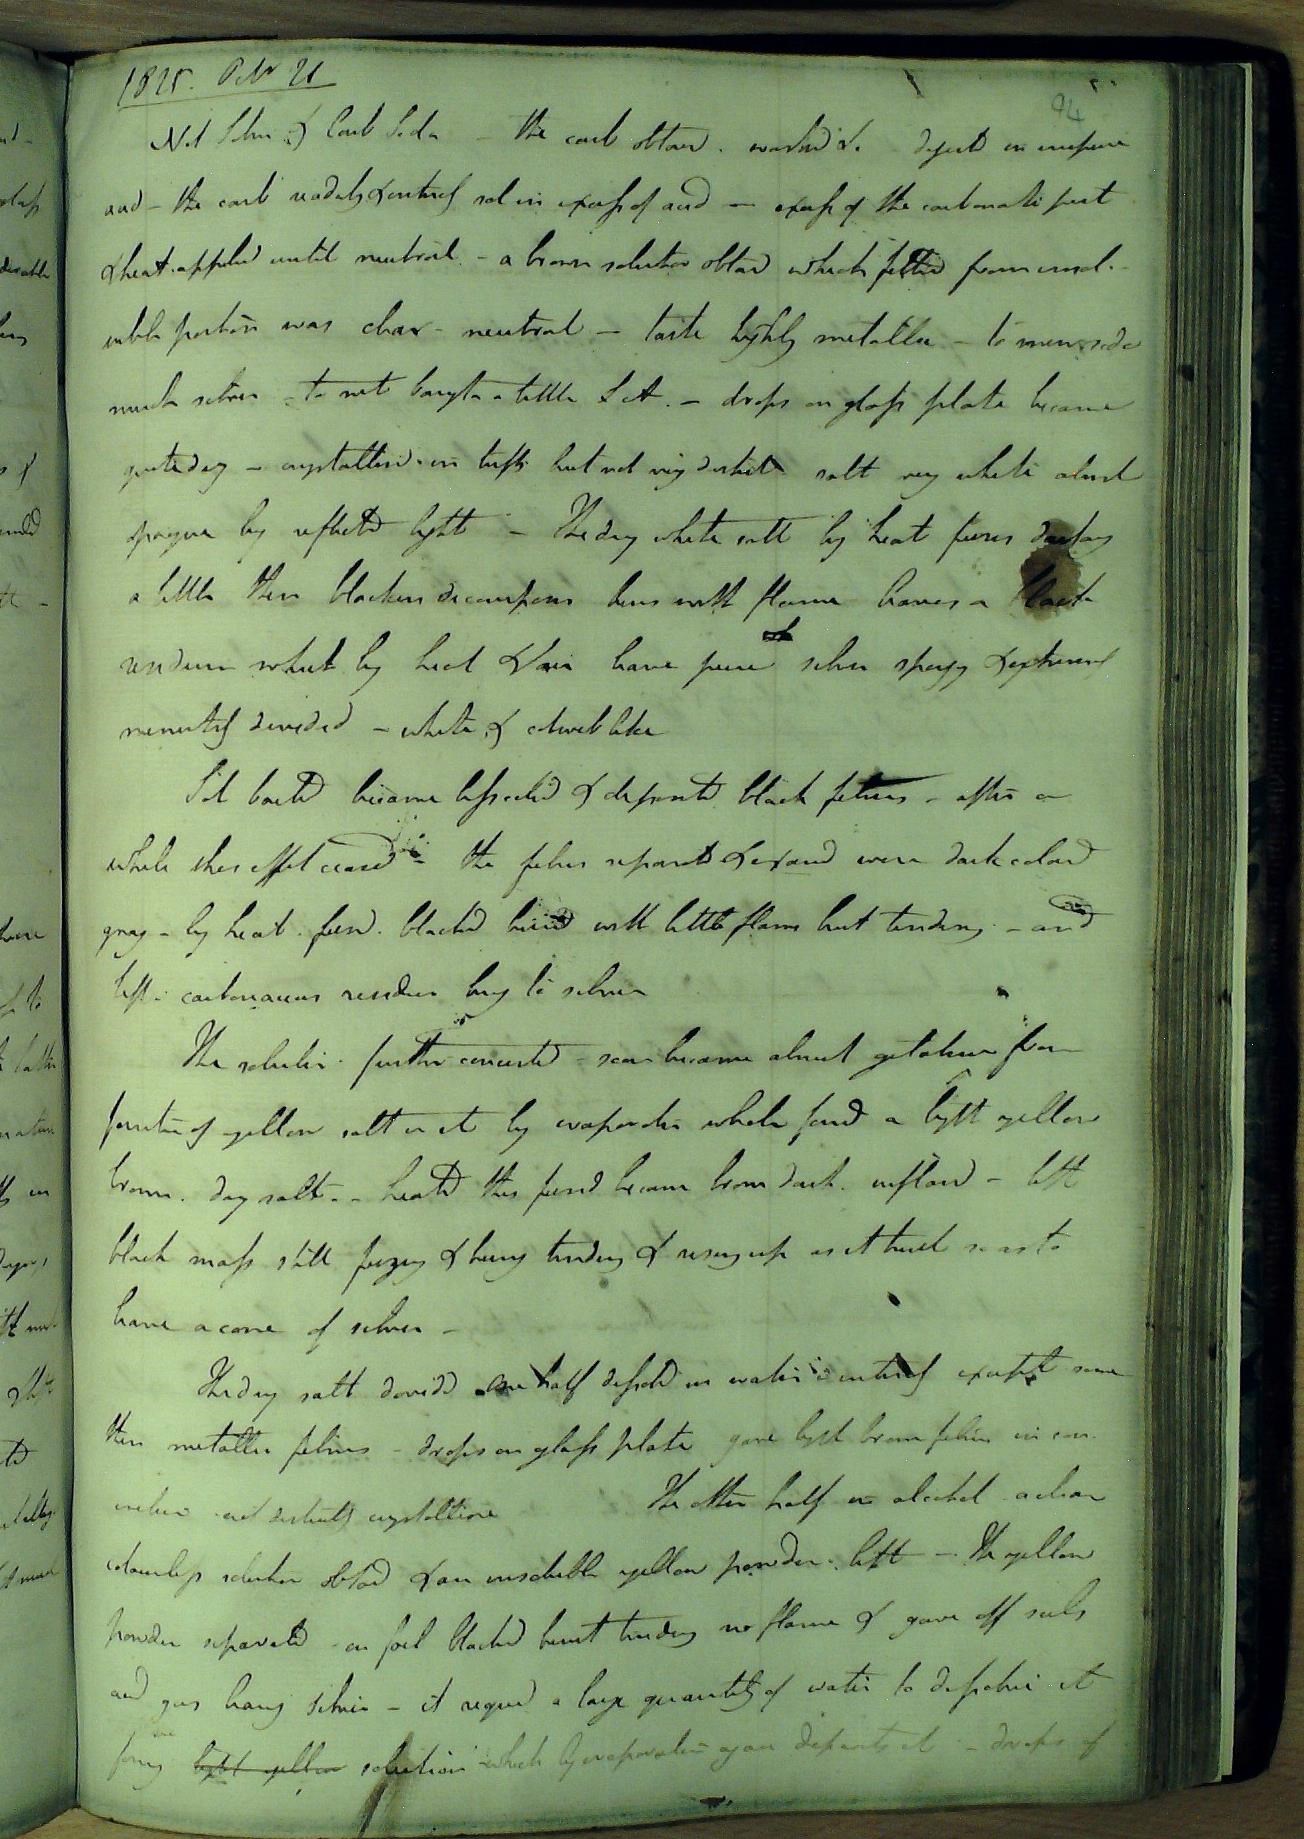 94
Nit Silver & Carb Soda - the carb obtaind. washed &c digested in impure
acid - the carb readily & entirely sol in excess of acid - excess of the carbonate put
& heat applied until neutral. - a brown solution obtaind which filterd from insol-
uble portion was clear - neutral - taste highly metallic - to mur soda
much silver - to nit baryta a little S A. - drops on glass plate became
quite dry - crystallised in tufts but not very distinct salt very white almost
opaque by reflected light - The dry white salt by heat fuses
a little then blackens decomposes burns with flame leaves a black
residuum which by heat & air leave pure silver spongy & extremely
minutely divided - white & cobweb like
Sol boild became less cold & deposited black films - after a
while this effect ceased - the films separated & were dark colord
gray - by heat fusd. blackd burnd with little flame but - and
left carbonaceous residue burng to silver
The solution further - soon became almost gelatinous from
formation of yellow salt in it by evaporation whole formd a light yellow
brown dry salt - heated this fused became brown dark inflamd - left
black mass still fuzing & burng & rising up as it so as to
leave a cone of silver -
The dry salt dividd one half dissold in water entirely except some
thin metallic films - drops on glass plate gave light brown films in con-
not distinctly crystalline The other half in alcohol a clear
colourless solution obtaind & an insoluble yellow powder left - The yellow
powder separated on foil blackd burnt no flame & gave off sul
acid gas leavg silver - it requird a large quantity of water to dissolve it
formg light yellow solution which by evaporation again deposits it - drops of